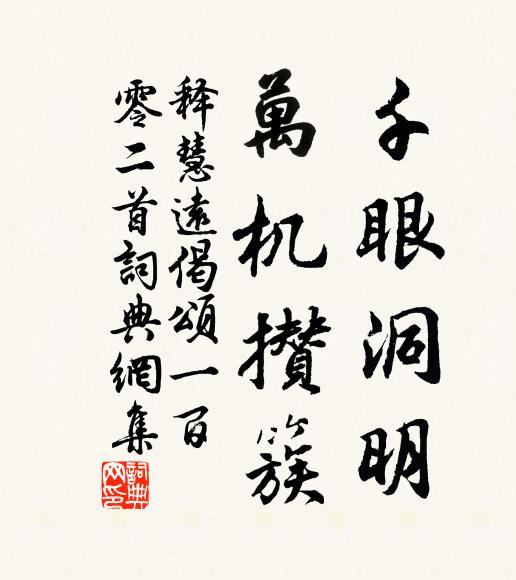 千眼洞明
萬机攢簇
释慧遠偈頌一百
零二首詞典網集
詞典网印